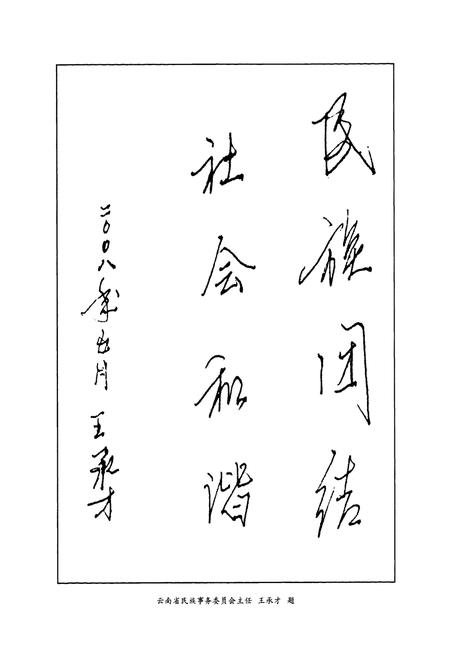 民族团结
社会和谐
二〇〇八年五月 王承才
云南省民族事务委员会主任 王承才 题